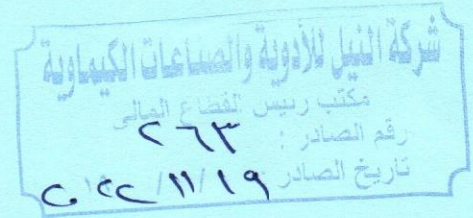 شركة النيل للأدوية والصناعات الكيماوية
مكتب رئيس القطاع المالى
رقم الصادر : ٢٦٣
تاريخ الصادر ١٩/١١/٢٠٢٢